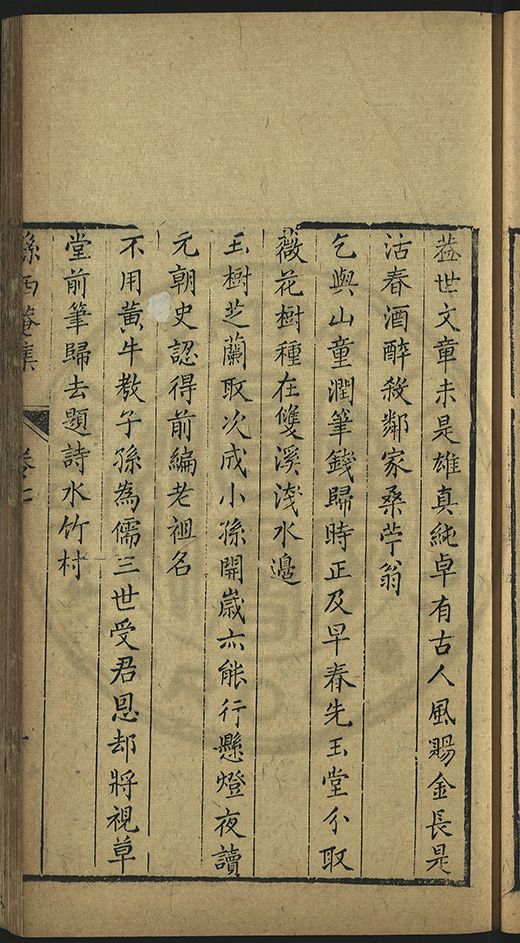 葢世文章未是雄真純卓有古人風賜金長是
沽春酒醉殺鄰家桑苧翁
乞與山童潤筆錢歸時正及早春先玉堂分取
薇花樹種在雙溪淺水邊
玉樹芝蘭取次成小孫開歲亦能行懸燈夜讀
元朝史認得前編老祖名
不用黃牛教子孫為儒三世受君恩却將視草
堂前筆歸去題詩水竹村
孫西菴集 卷七